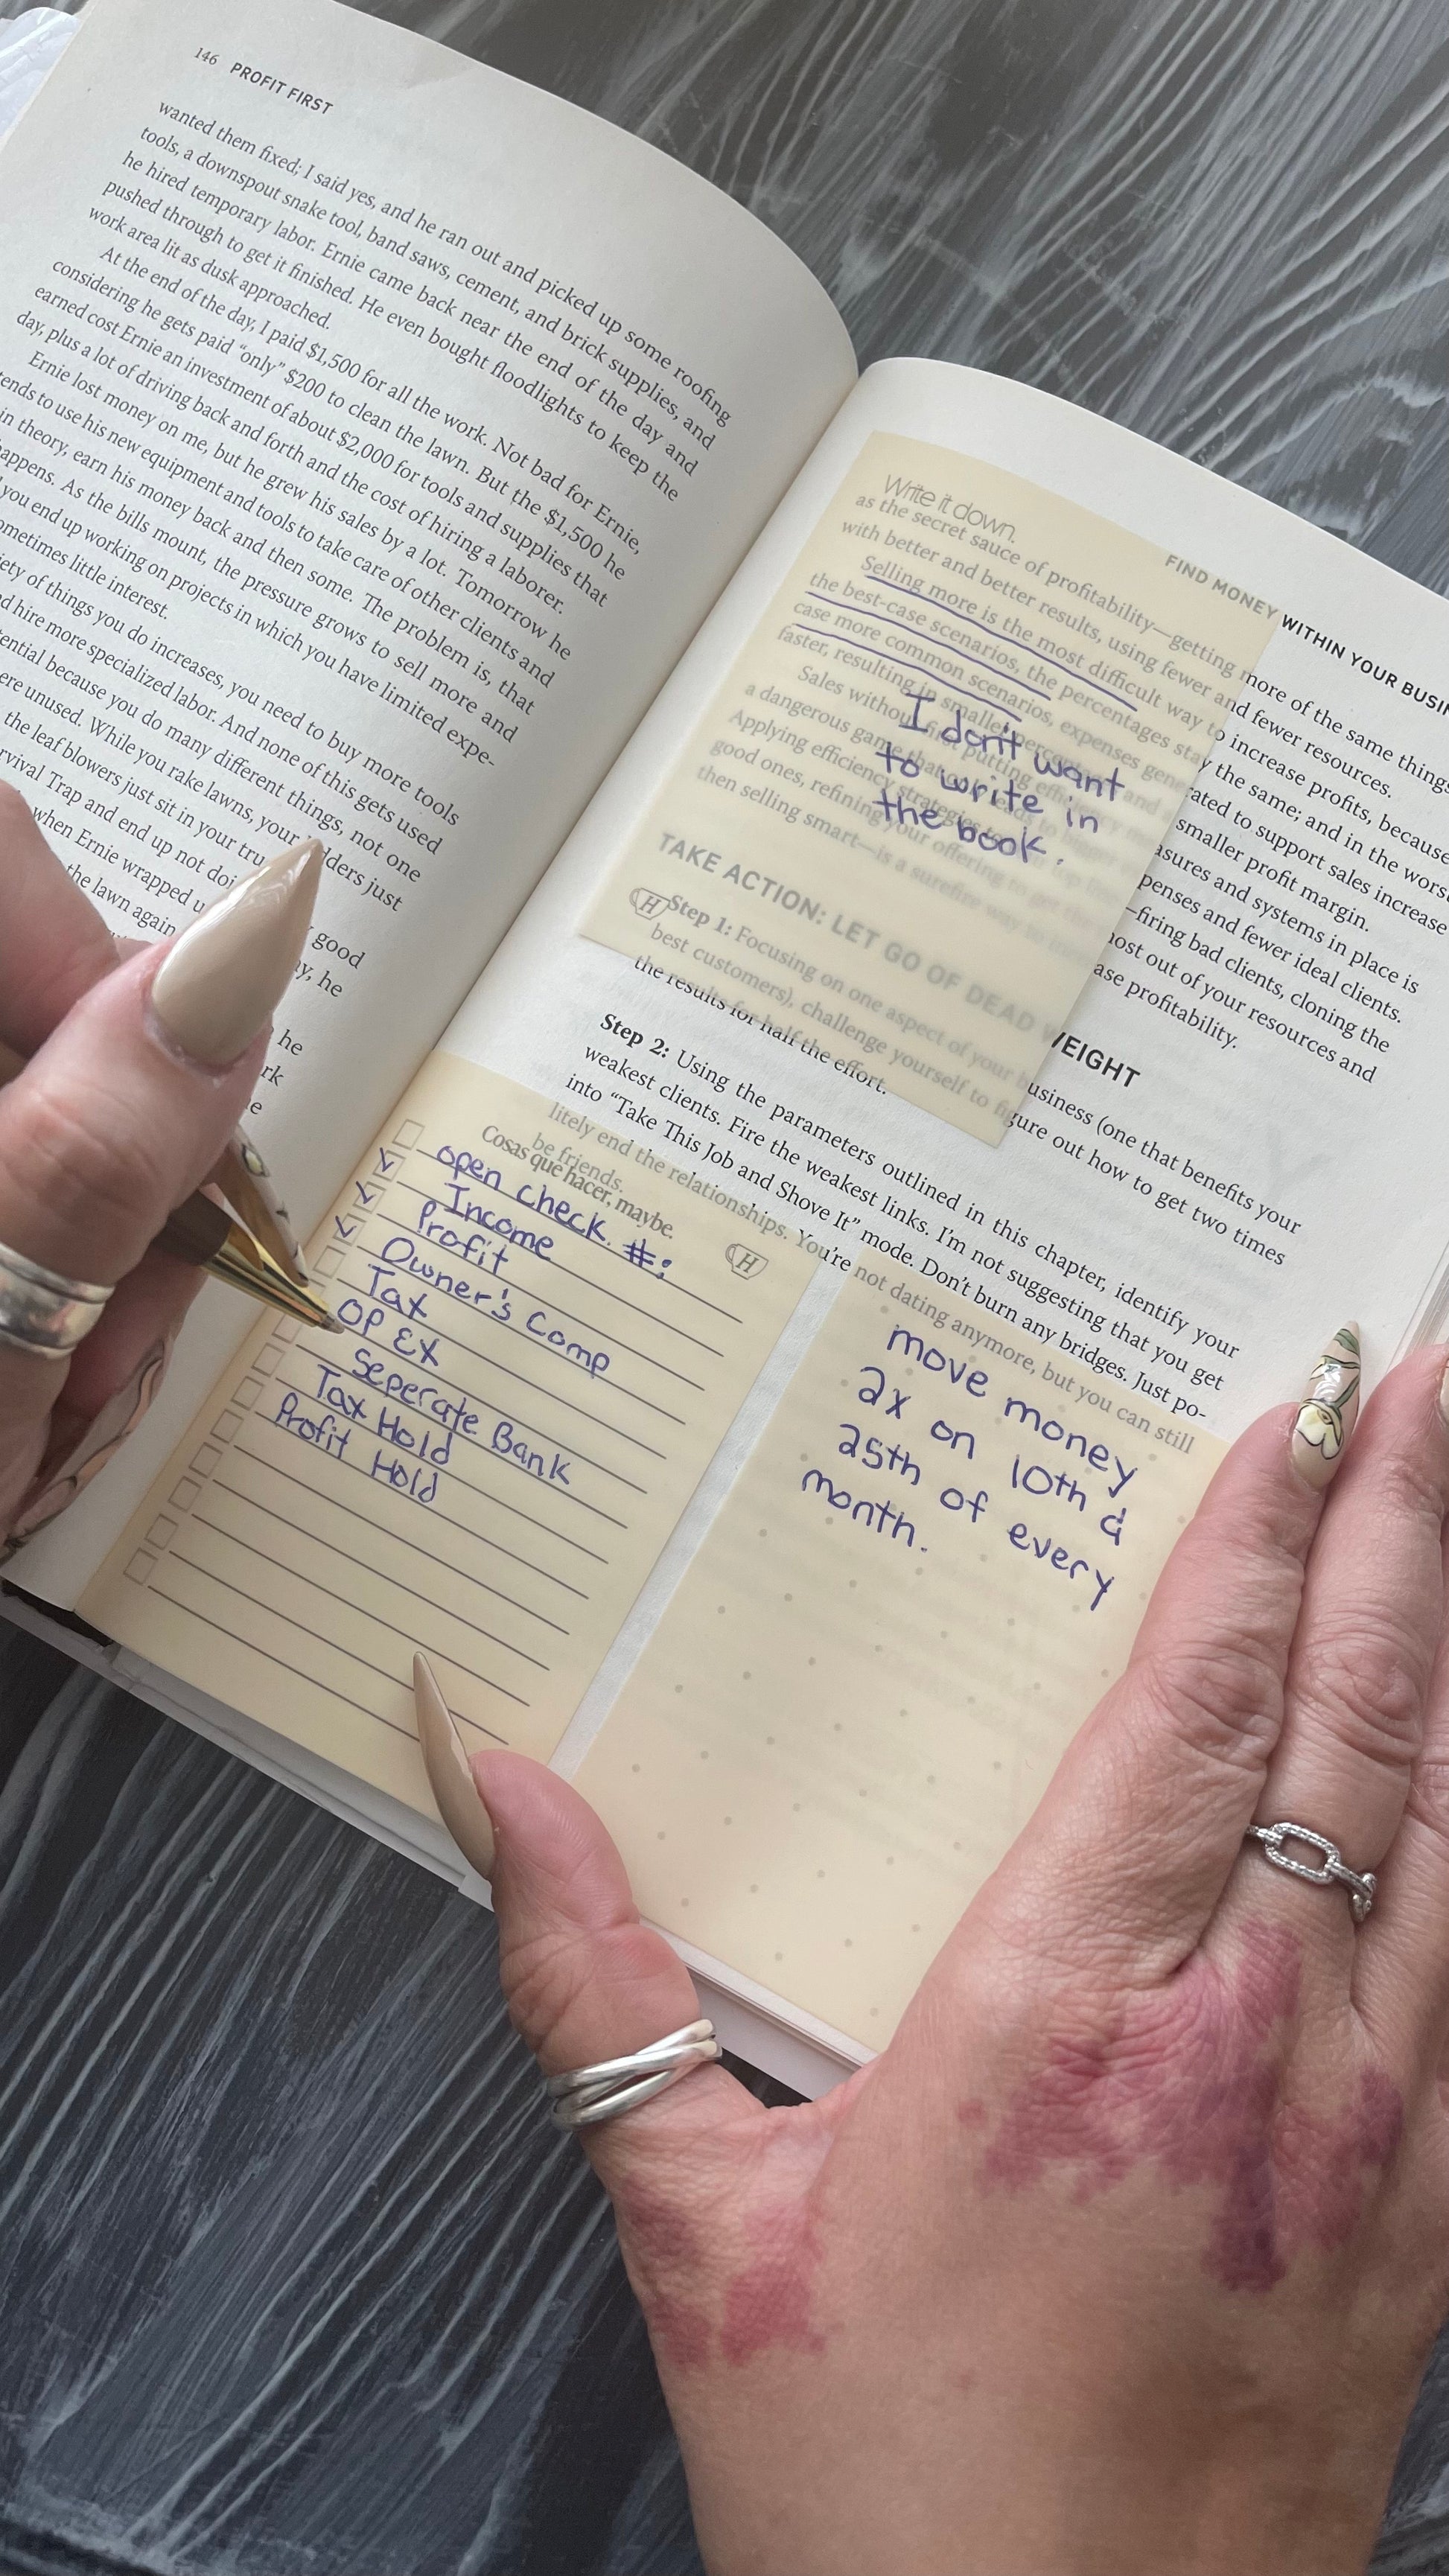 146 PROFIT FIRST
wanted them fixed; I said yes, and he ran out and picked up some roofing
tools, a downspout snake tool, band saws, cement, and brick supplies, and
he hired temporary labor. Ernie came back near the end of the day and
pushed through to get it finished. He even bought floodlights to keep the
work area lit as dusk approached.
At the end of the day, I paid $1,500 for all the work. Not bad for Ernie,
considering he gets paid “only” $200 to clean the lawn. But the $1,500 he
earned cost Ernie an investment of about $2,000 for tools and supplies that
day, plus a lot of driving back and forth and the cost of hiring a laborer.
Ernie lost money on me, but he grew his sales by a lot. Tomorrow he
tends to use his new equipment and tools to take care of other clients and
in theory, earn his money back and then some. The problem is, that
happens. As the bills mount, the pressure grows to sell more and
you end up working on projects in which you have limited expe-
ometimes little interest.
iety of things you do increases, you need to buy more tools
d hire more specialized labor. And none of this gets used
ential because you do many different things, not one
ere unused. While you rake lawns, your ladders just
the leaf blowers just sit in your tru
rvival Trap and end up not doi good
when Ernie wrapped u y, he
the lawn again he
rk
FIND MONEY WITHIN YOUR BUSIN
Write it down.
as the secret sauce of profitability—getting more of the same things
with better and better results, using fewer and fewer resources.
Selling more is the most difficult way to increase profits, because
the best-case scenarios, the percentages stay the same; and in the worst
case more common scenarios, expenses generated to support sales increase
faster, resulting in smaller percentages smaller profit margin.
Sales without first putting efficiency measures and systems in place is
a dangerous game that leads to bigger expenses and fewer ideal clients.
Applying efficiency strategies to —firing bad clients, cloning the
good ones, refining your offering to get the most out of your resources and
then selling smart—is a surefire way to increase profitability.
I don't want
to write in
the book.
TAKE ACTION: LET GO OF DEAD WEIGHT
H
Step 1: Focusing on one aspect of your business (one that benefits your
best customers), challenge yourself to figure out how to get two times
the results for half the effort.
Step 2: Using the parameters outlined in this chapter, identify your
weakest clients. Fire the weakest links. I'm not suggesting that you get
into “Take This Job and Shove It” mode. Don't burn any bridges. Just po-
litely end the relationships. You're not dating anymore, but you can still
be friends.
Cosas que hacer, maybe.
H
open check. #:
Income
Profit
Owner's Comp
Tax
OP EX
Seperate Bank
Tax Hold
Profit Hold
move money
2x on 10th &
25th of every
month.